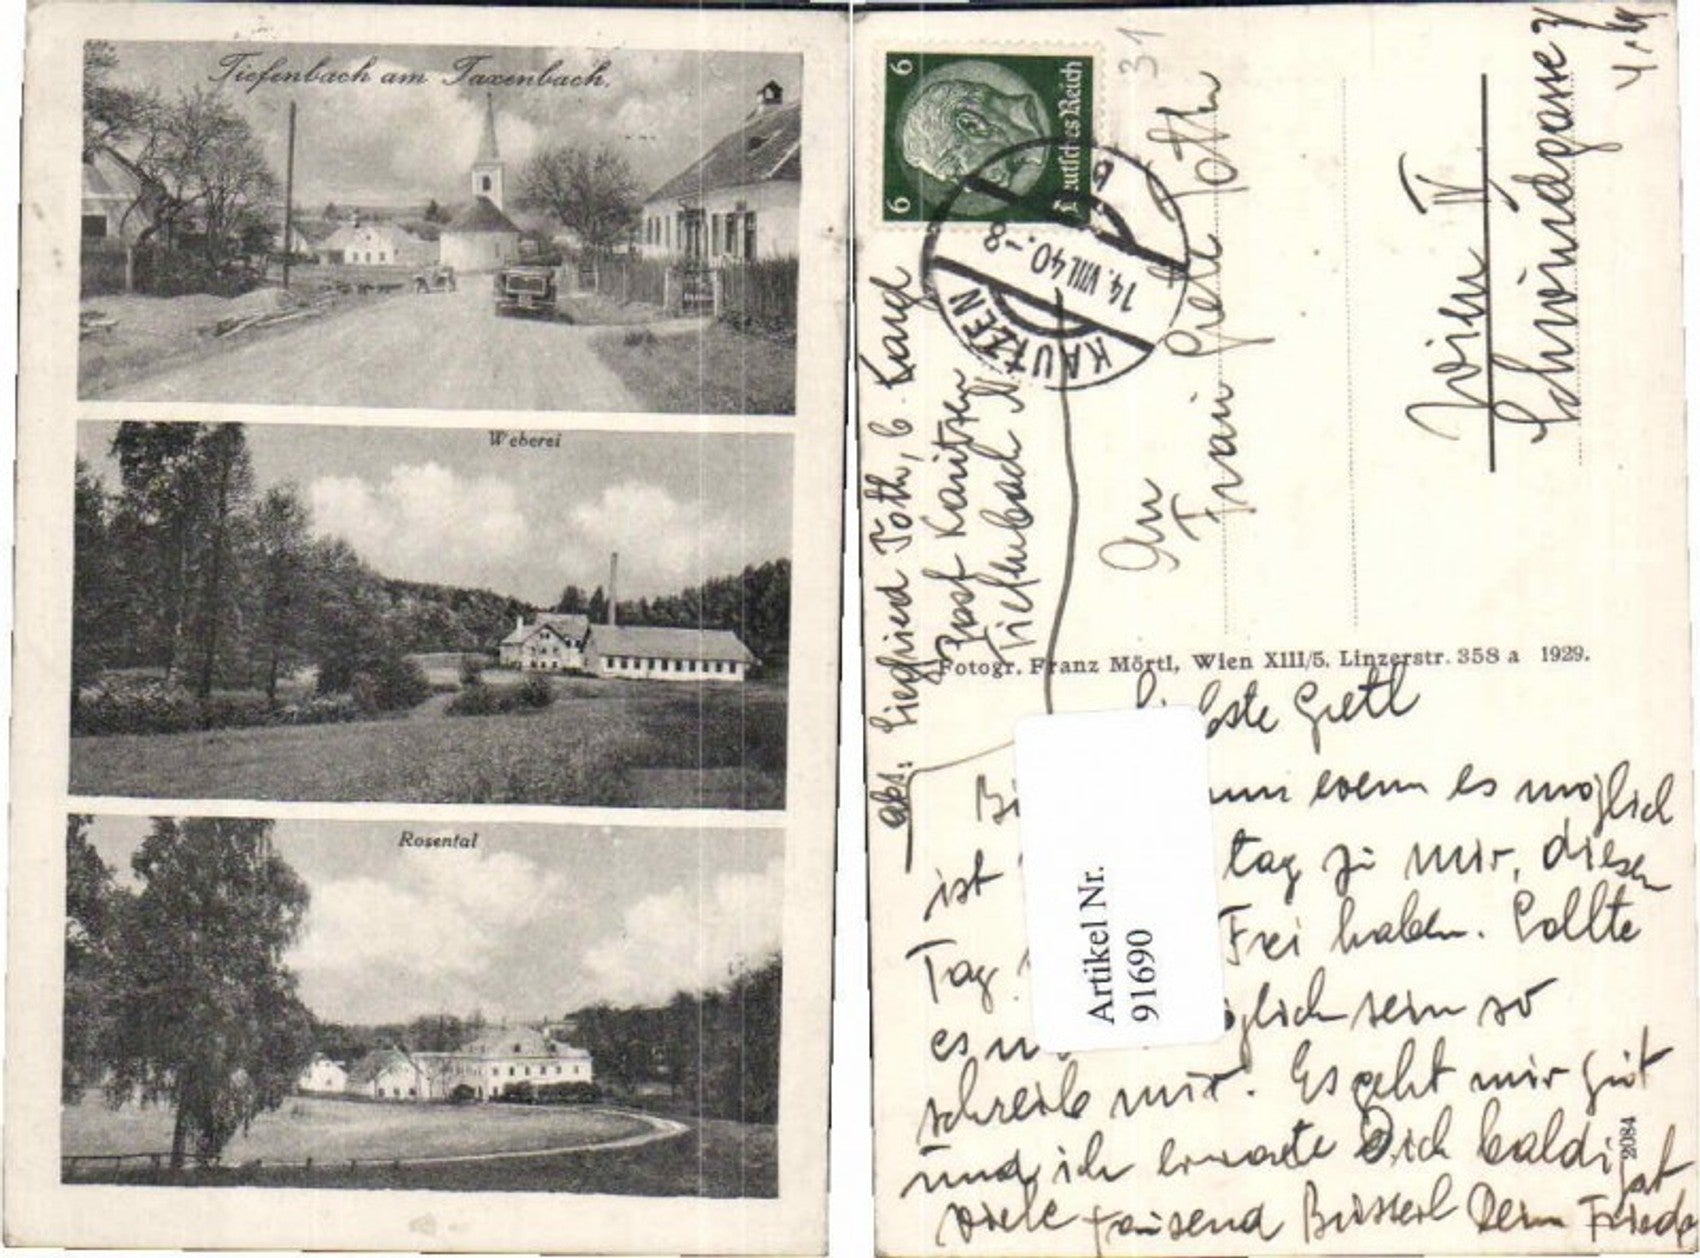 Tiefenbach am Taxenbach.
Weberei
Rosental
6 6
Deutsches Reich
KAUTZEN
14.VIII.40.-8
b
31
An
Frau Gretl Toth
Wien IV.
Schwindgasse
Abs: Siegfried Toth, b. Kargl
Post Kautzen
Tiefenbach N
Fotogr. Franz Mörtl, Wien XIII/5, Linzerstr. 358 a 1929.
Gretl
wenn es möglich
ist tag zu mir, diesen
Tag Frei haben. Sollte
es möglich sein so
schreib mir. Es geht mir gut
und ich erwarte Dich baldigst
viele tausend Busserl Dein Friedl
Artikel Nr.
91690
2084